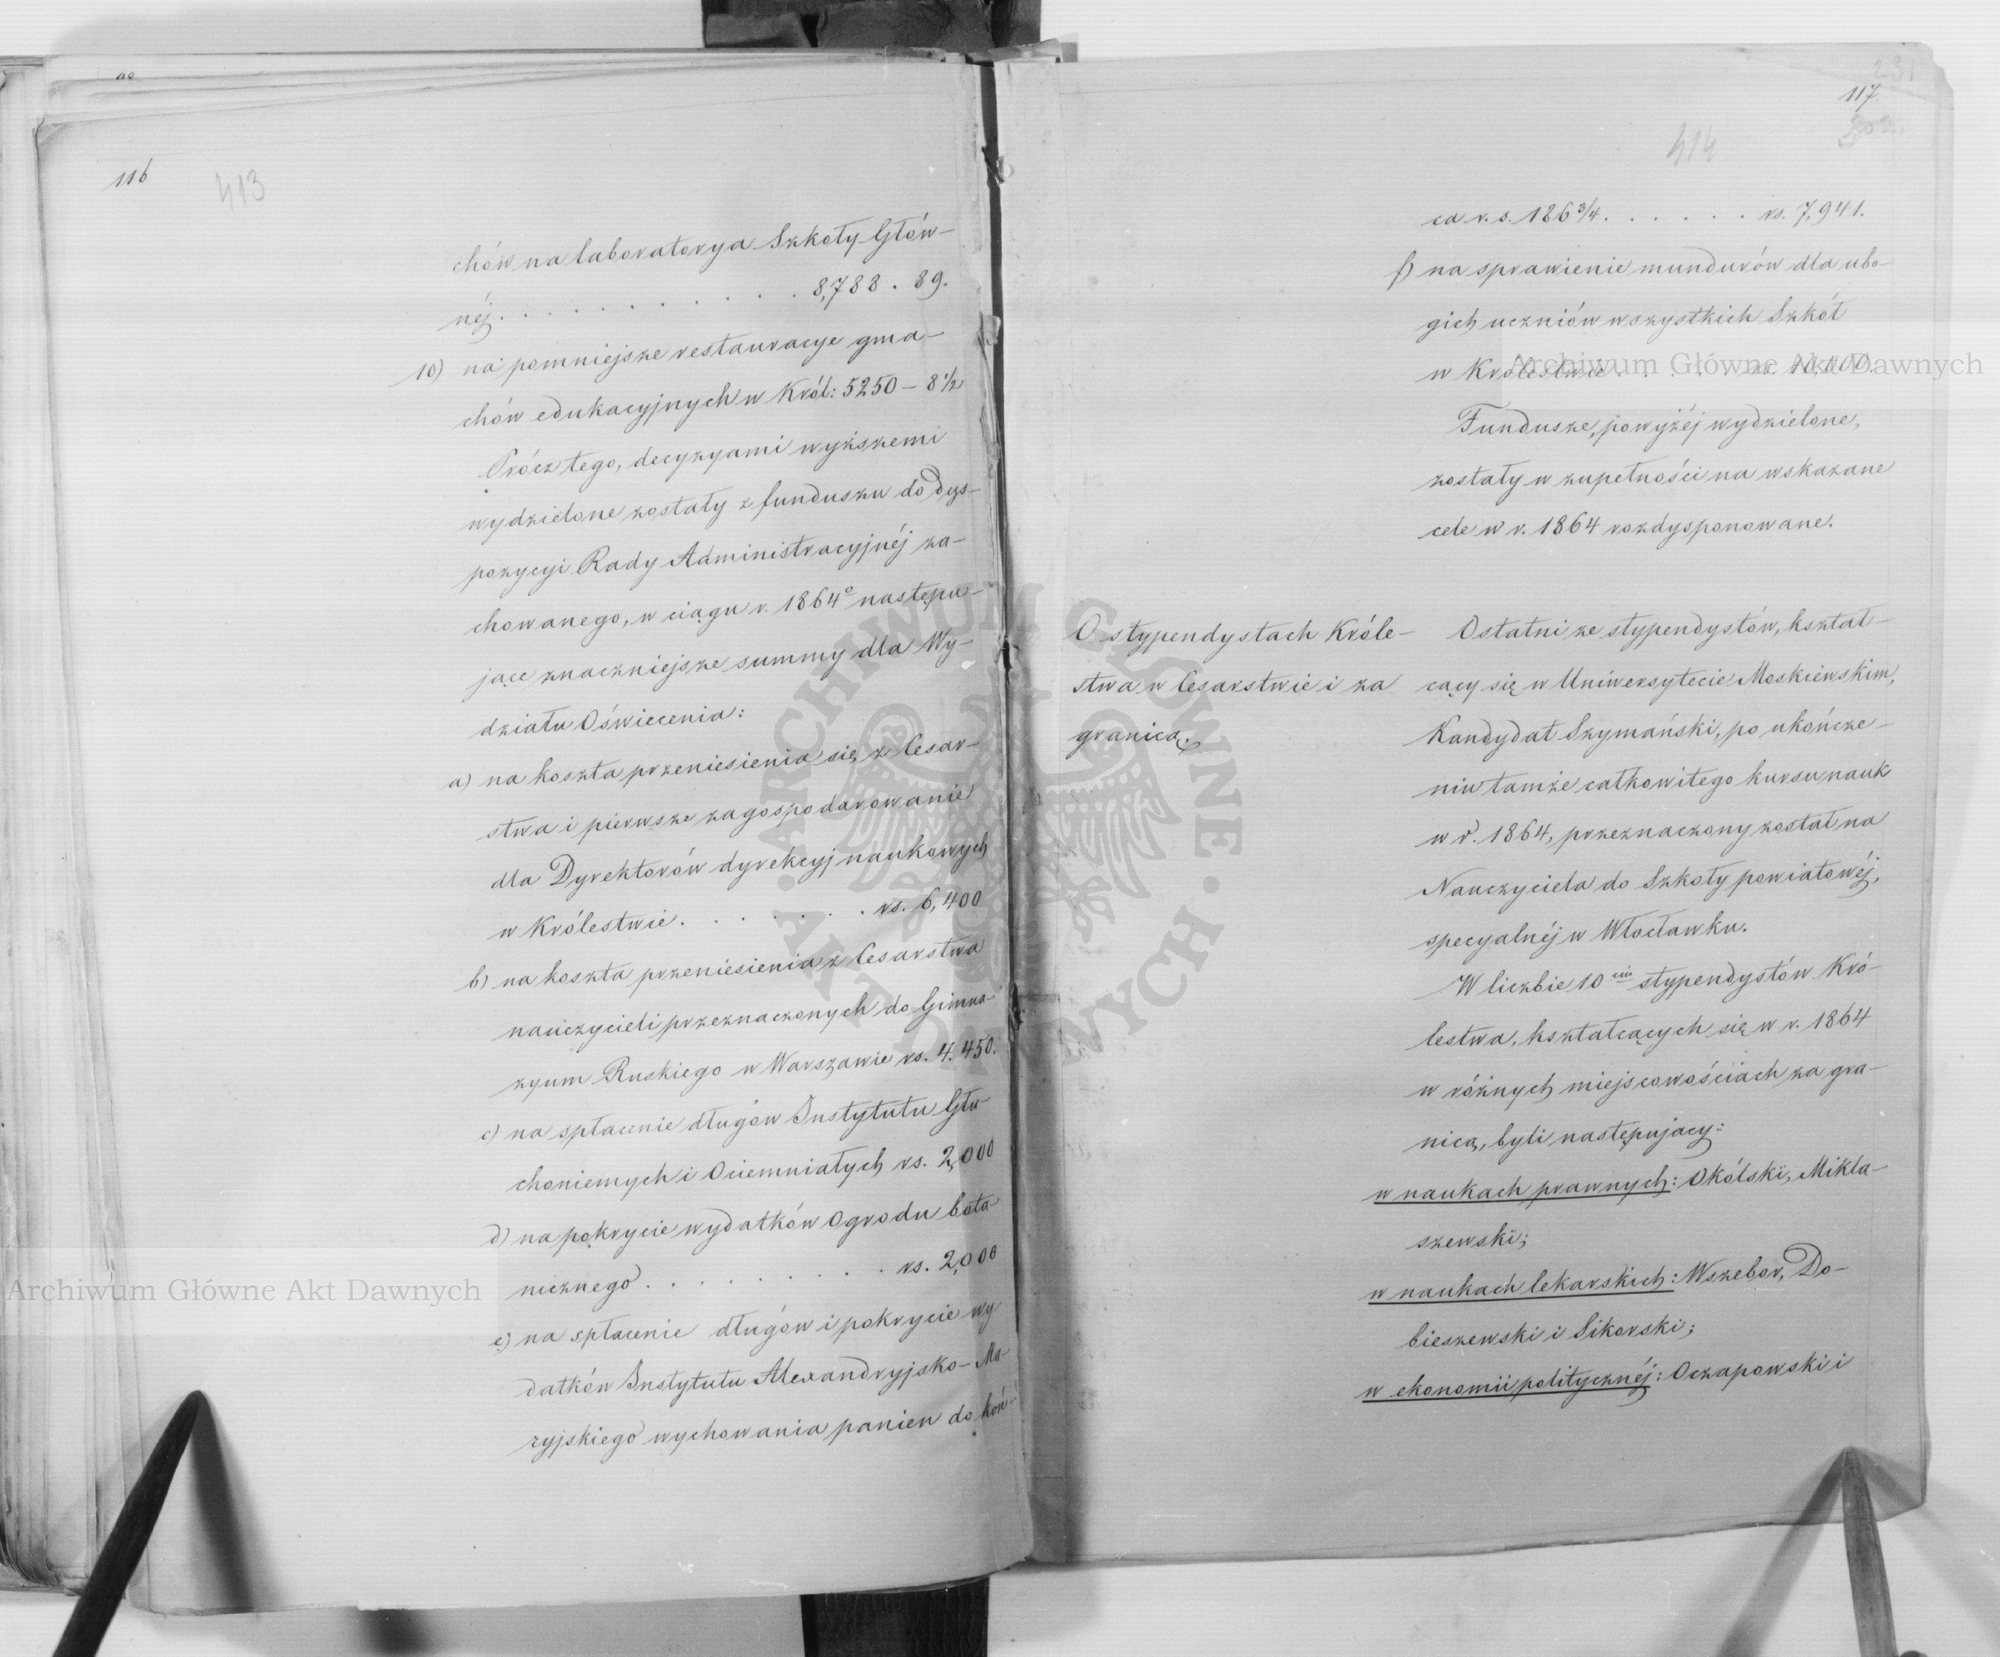 116
413
chów na laboratorya Szkoły Głów-
néj . . . . . . . . . . . . 8,788 . 89.
10) na pomniejsze restauracye gma-
chów edukacyjnych w Król: 5250 – 8 1/2
Prócz tego, decyzyami wyższemi
wydzielone zostały z funduszu do dys-
pozycyi Rady Administracyjnéj za-
chowanego, w ciągu r. 1864° następu-
jące znaczniejsze summy dla Wy-
działu Oświecenia:
a) na koszta przeniesienia się z Cesar-
stwa i pierwsze zagospodarowanie
dla Dyrektorów dyrekcyj naukowych
w Królestwie . . . . . . . rs. 6,400
b) na koszta przeniesienia z Cesarstwa
nauczycieli przeznaczonych do Gimna-
zyum Ruskiego w Warszawie rs. 4.450.
c) na spłacenie długów Instytutu Głu-
choniemych i Ociemniałych rs. 2,000
d) na pokrycie wydatków Ogrodu bota
nicznego . . . . . . . . . . rs. 2,000
e) na spłacenie długów i pokrycie wy
datków Instytutu Alexandryjsko-Ma-
ryjskiego wychowania panien do koń-
117
414
ca r. s. 186 3/4 . . . . . . rs. 7,941.
f) na sprawienie mundurów dla ubo-
gich uczniów wszystkich Szkół
w Królestwie . . . . . . rs. 10,000.
Fundusze, powyżéj wydzielone,
zostały w zupełności na wskazane
cele w r. 1864 rozdysponowane.
O stypendystach Króle-
stwa w Cesarstwie i za
granicą.
Ostatni ze stypendystów, kształ-
cący się w Uniwersytecie Moskiewskim,
Kandydat Szymański, po ukończe-
niu tamże całkowitego kursu nauk
w r. 1864, przeznaczony został na
Nauczyciela do Szkoły powiatowéj,
specyalnéj w Włocławku.
W liczbie 10 ciu stypendystów Kró-
lestwa, kształcących się w r. 1864
w różnych miejscowościach za gra-
nicą, byli następujący:
w naukach prawnych: Okólski, Mikla-
szewski;
w naukach lekarskich: Wszebor, Do-
bieszewski i Sikorski;
w ekonomii politycznéj: Oczapowski i
Archiwum Główne Akt Dawnych
Archiwum Główne Akt Dawnych
ARCHIWUM GŁÓWNE AKT DAWNYCH